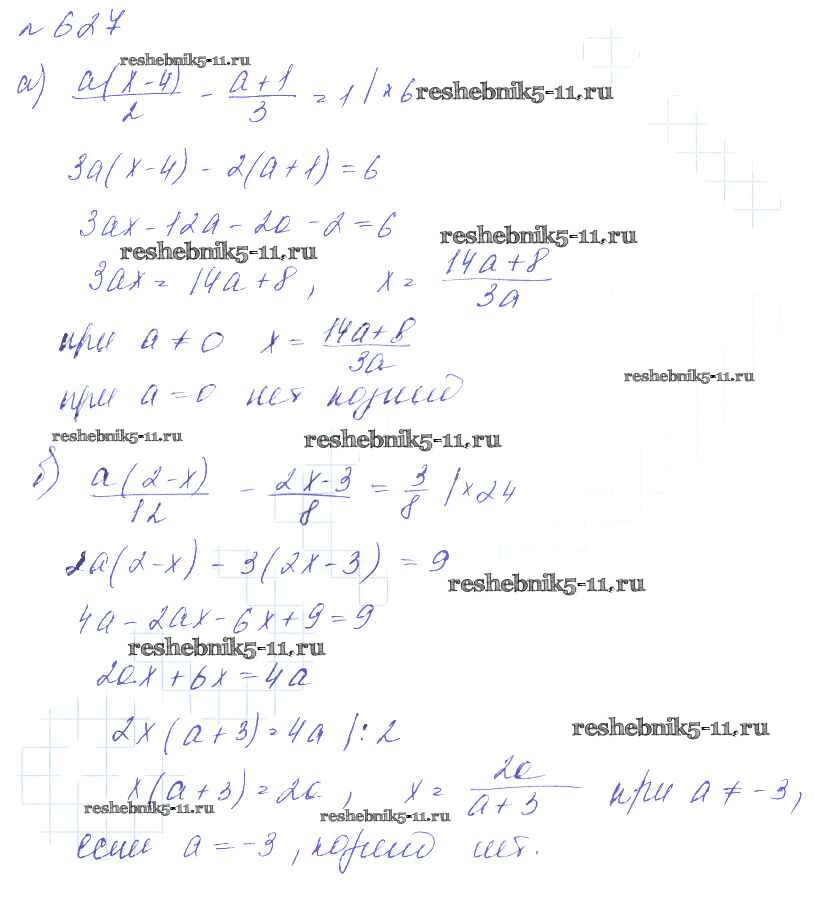 № 627
reshebnik5-11.ru
а) a(x-4)/2 - a+1/3 = 1 |×6 reshebnik5-11.ru
3a(x-4) - 2(a+1) = 6
3ax - 12a - 2a - 2 = 6
reshebnik5-11.ru reshebnik5-11.ru
3ax = 14a + 8, x = 14a+8/3a
при a ≠ 0 x = 14a+8/3a
reshebnik5-11.ru
при a = 0 нет корней
reshebnik5-11.ru reshebnik5-11.ru
б) a(2-x)/12 - 2x-3/8 = 3/8 |×24
2a(2-x) - 3(2x-3) = 9
reshebnik5-11.ru
4a - 2ax - 6x + 9 = 9
reshebnik5-11.ru
2ax + 6x = 4a
2x(a+3) = 4a |:2
reshebnik5-11.ru
x(a+3) = 2a, x = 2a/a+3 при a ≠ -3,
reshebnik5-11.ru reshebnik5-11.ru
если a = -3, корней нет.